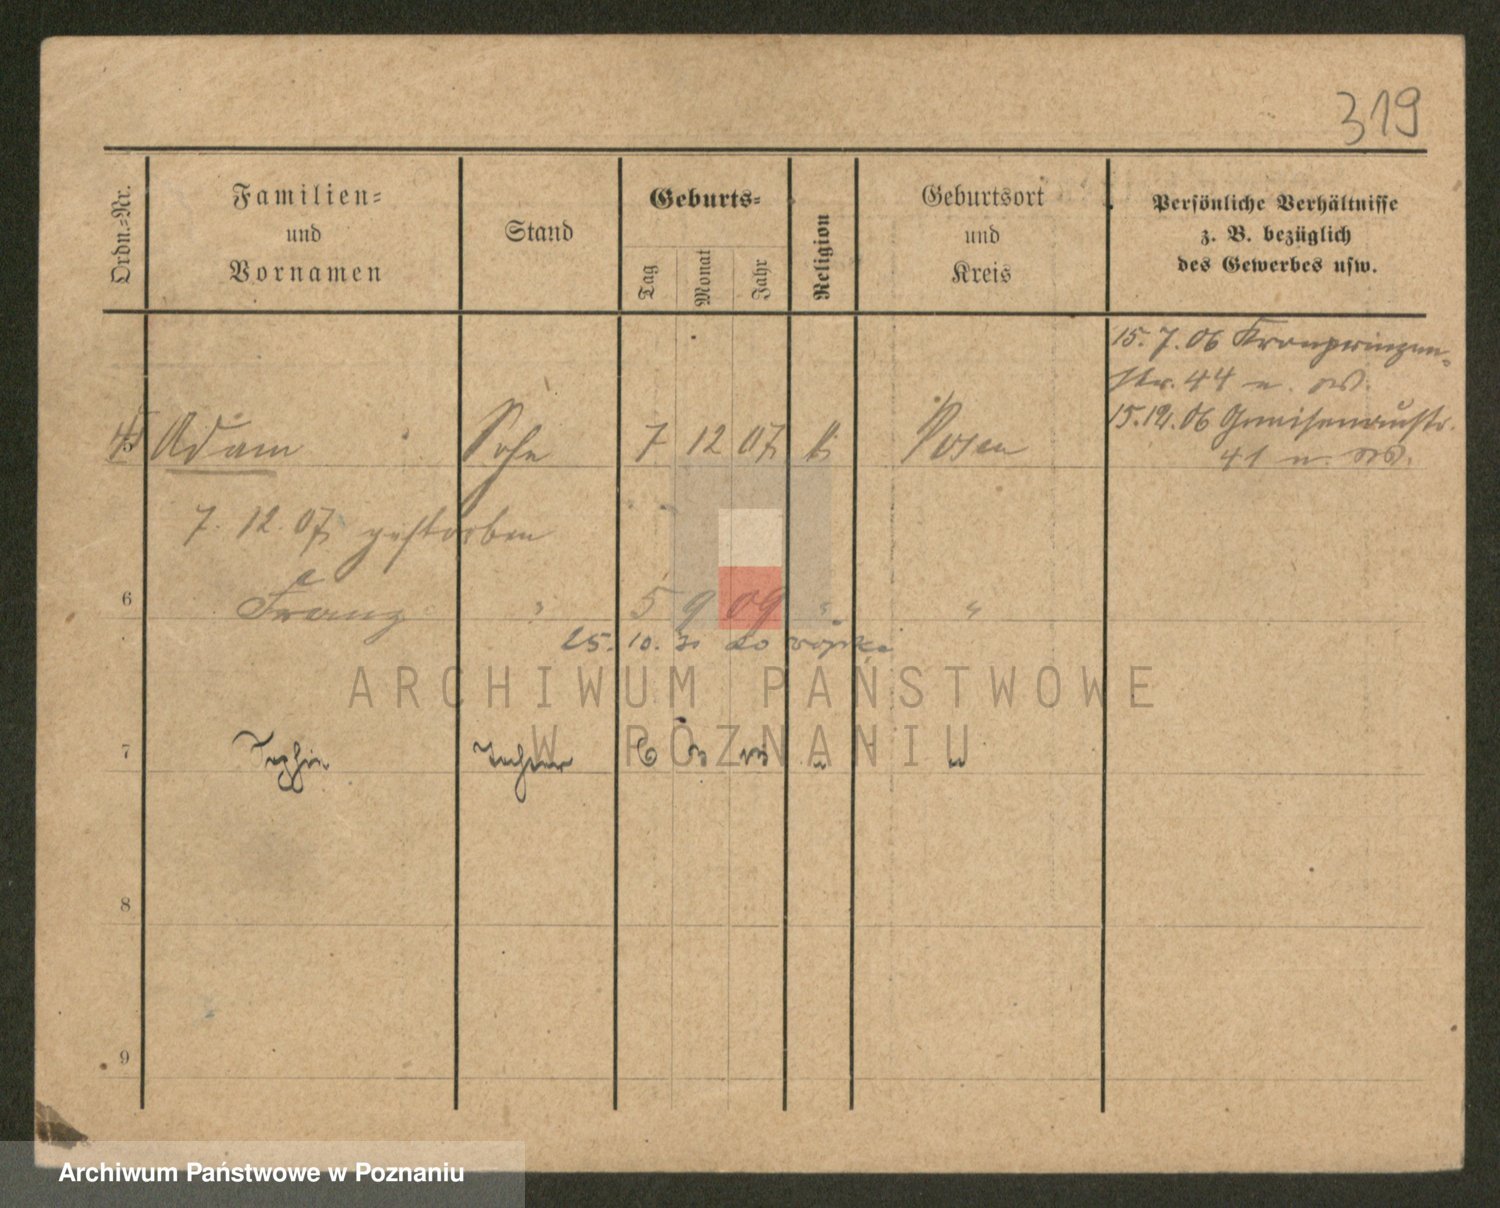 319
Ordn.-Nr.
Familien-
und
Vornamen
Stand
Geburts-
Tag
Monat
Jahr
Religion
Geburtsort
und
Kreis
Persönliche Verhältnisse
z. B. bezüglich
des Gewerbes usw.
15. 7. 06 Kronprinzen-
str. 44 n.
15. 12. 06 Gneisenaustr.
41 n.
5 Adam Sohn 7 12 07 k. Posen
7. 12. 07 gestorben
6 Franz " 5 9 09 " "
25. 10. 30 do wojska
7 Sophie Tochter 6
8
9
ARCHIWUM PAŃSTWOWE
W POZNANIU
Archiwum Państwowe w Poznaniu